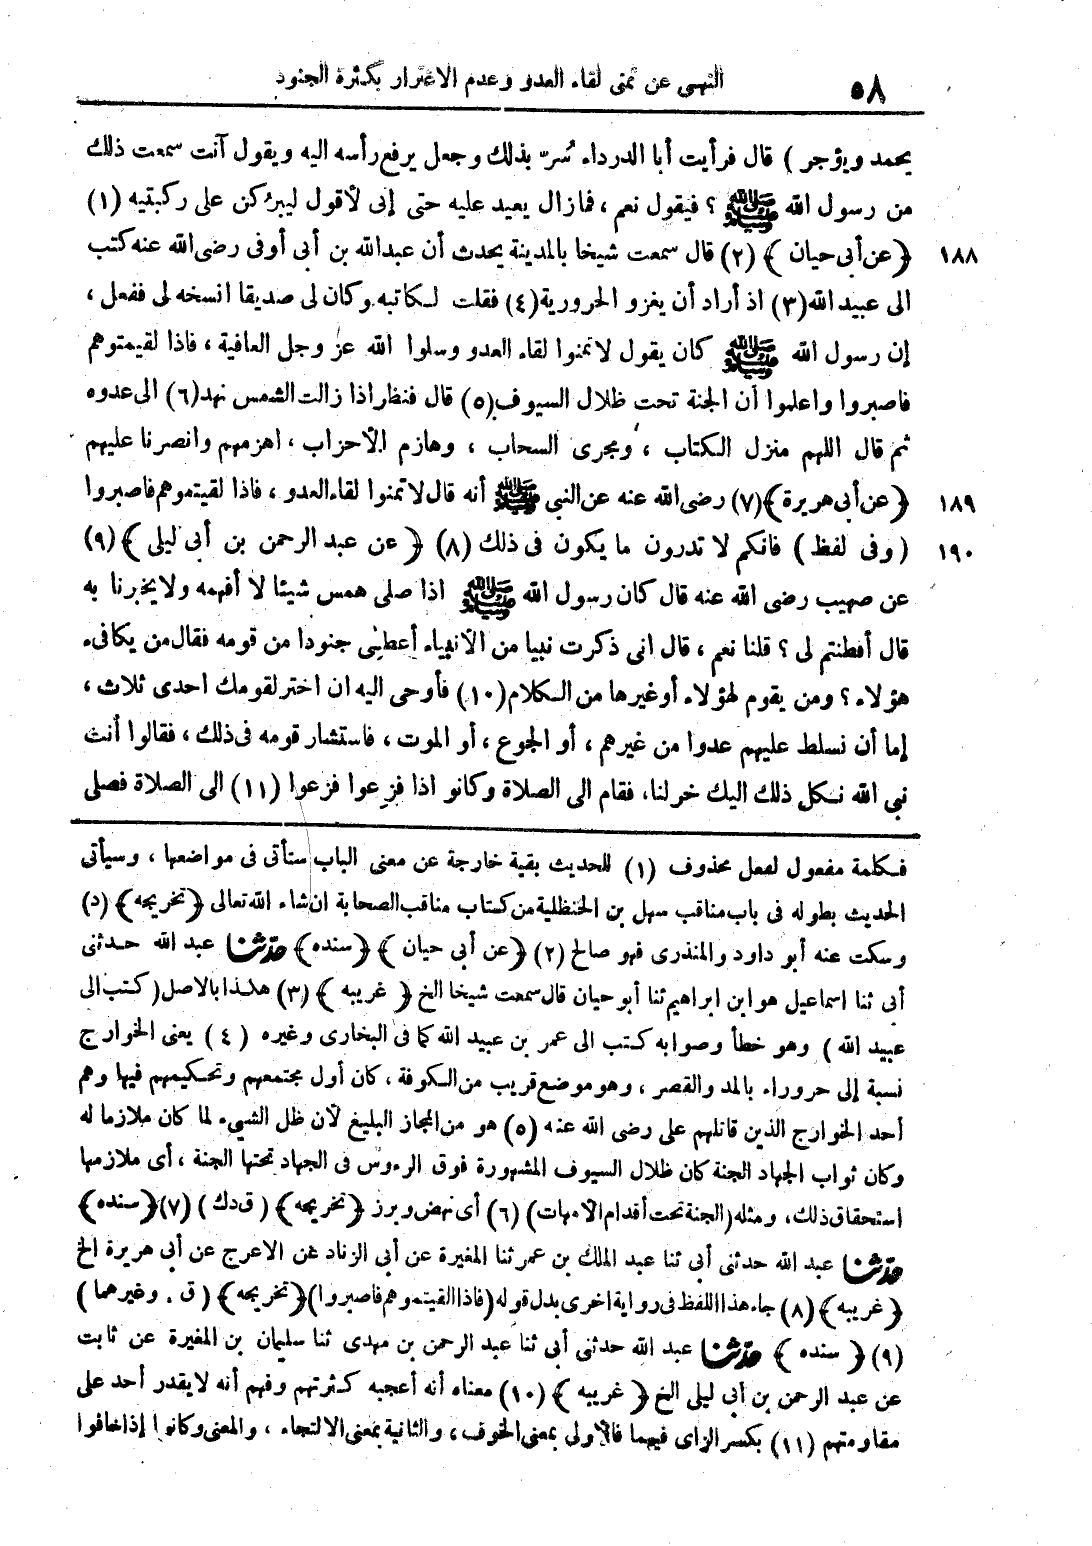 ٥٨
النهي عن تمنى لقاء العدو وعدم الاغترار بكثرة الجنود
يحمد ويؤجر ) قال فرأيت أبا الدرداء سُرّ بذلك وجعل يرفع رأسه اليه ويقول آنت سمعت ذلك
من رسول الله ﷺ ؟ فيقول نعم ، فمازال يعيد عليه حتى إنى لأقول ليبركن على ركبتيه (١)
١٨٨ ﴿عن أبى حيان ﴾ (٢) قال سمعت شيخا بالمدينة يحدث أن عبدالله بن أبى أوفى رضى الله عنه كتب
الى عبيد الله (٣) اذ أراد أن يغزو الحرورية (٤) فقلت لكاتبه وكان لى صديقا انسخه لى ففعل ،
إن رسول الله ﷺ كان يقول لاتمنوا لقاء العدو وسلوا الله عز وجل العافية ، فاذا لقيتموهم
فاصبروا واعلموا أن الجنة تحت ظلال السيوف (٥) قال فنظر اذا زالت الشمس نهد (٦) الى عدوه
ثم قال اللهم منزل الكتاب ، ومجرى السحاب ، وهازم الأحزاب ، اهزمهم وانصرنا عليهم
١٨٩ ﴿عن أبى هريرة﴾ (٧) رضى الله عنه عن النبى ﷺ أنه قال لاتمنوا لقاء العدو ، فاذا لقيتموهم فاصبروا
١٩٠ ( وفى لفظ ) فانكم لا تدرون ما يكون فى ذلك (٨) ﴿ عن عبد الرحمن بن أبى ليلى ﴾ (٩)
عن صهيب رضى الله عنه قال كان رسول الله ﷺ اذا صلى همس شيئا لا أفهمه ولا يخبرنا به
قال أفطنتم لى ؟ قلنا نعم ، قال انى ذكرت نبيا من الأنبياء أعطى جنودا من قومه فقال من يكافىء
هؤلاء ؟ ومن يقوم لهؤلاء أوغيرها من الكلام (١٠) فأوحى اليه ان اختر لقومك احدى ثلاث ،
إما أن نسلط عليهم عدوا من غيرهم ، أو الجوع ، أو الموت ، فاستشار قومه فى ذلك ، فقالوا أنت
نبى الله نكل ذلك اليك خر لنا، فقام الى الصلاة وكانو اذا فزعوا فزعوا (١١) الى الصلاة فصلى
فكلمة مفعول لفعل محذوف (١) للحديث بقية خارجة عن معنى الباب ستأتى فى مواضعها ، وسيأتى
الحديث بطوله فى باب مناقب سهل بن الحنظلية من كتاب مناقب الصحابة ان شاء الله تعالى ﴿تخريجه﴾ (د)
وسكت عنه أبو داود والمنذرى فهو صالح (٢) ﴿عن أبي حيان ﴾ ﴿سنده﴾ حدّثنا عبد الله حدثنى
أبى ثنا اسماعيل هو ابن ابراهيم ثنا أبو حيان قال سمعت شيخا الخ ﴿ غريبه ﴾ (٣) هكذا بالاصل ( كتب الى
عبيد الله ) وهو خطأ وصوابه كتب الى عمر بن عبيد الله كما فى البخارى وغيره (٤) يعنى الخوارج
نسبة إلى حروراء بالمد والقصر ، وهو موضع قريب من الكوفة ، كان أول مجتمعهم وتحكيمهم فيها وهم
أحد الخوارج الذين قاتلهم على رضى الله عنه (٥) هو من المجاز البليغ لأن ظل الشىء لما كان ملازما له
وكان ثواب الجهاد الجنة كان ظلال السيوف المشهورة فوق الرءوس فى الجهاد تحتها الجنة ، أى ملازمها
استحقاق ذلك، ومثله (الجنة تحت أقدام الأمهات) (٦) أى نهض وبرز ﴿تخريجه﴾ ( ق دك ) (٧) ﴿سنده﴾
حدّثنا عبد الله حدثنى أبى ثنا عبد الملك بن عمر ثنا المغيرة عن أبي الزناد عن الاعرج عن أبي هريرة الخ
﴿غريبه﴾ (٨) جاء هذا اللفظ فى رواية اخرى بدل قوله (فاذا القيتموهم فاصبروا) ﴿تخريجه﴾ ( ق . وغيرهما )
(٩) ﴿ سنده ﴾ حدّثنا عبد الله حدثنى أبى ثنا عبد الرحمن بن مهدى ثنا سليمان بن المغيرة عن ثابت
عن عبد الرحمن بن أبى ليلى الخ ﴿ غريبه ﴾ (١٠) معناه أنه أعجبه كثرتهم وفهم أنه لايقدر أحد على
مقاومتهم (١١) بكسر الزاى فيهما فالأولى بمعنى الخوف ، والثانية بمعنى الالتجاء ، والمعنى وكانوا إذا خافوا